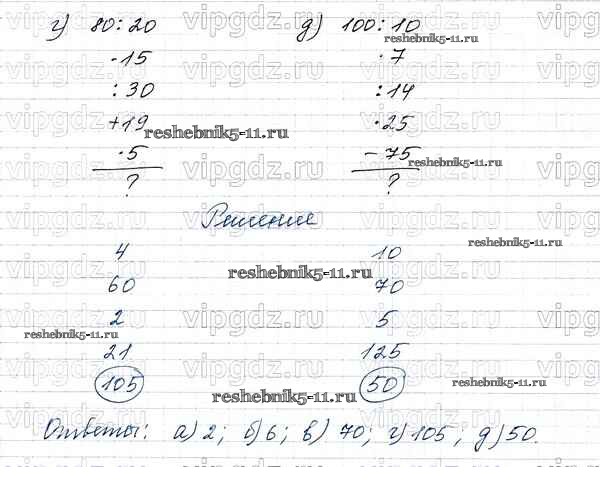 г) 80:20 д) 100:10
·15 ·7
:30 :14
+19 ·25
·5 -75
? ?
Решение
4 10
60 70
2 5
21 125
105 50
Ответы: а) 2; б) 6; в) 70; г) 105; д) 50.
vipgdz.ru
reshebnik5-11.ru